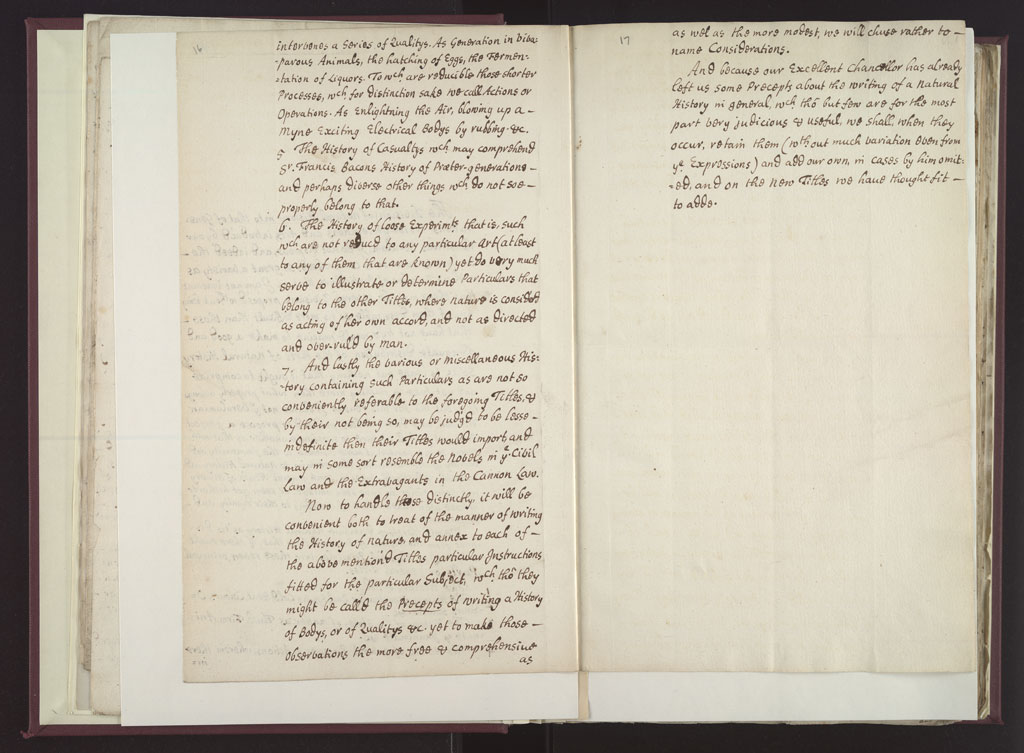 16
intervenes a Series of Qualitys. As Generation in viva-
-parous Animals, the hatching of Eggs, the Fermen-
-tation of Liquors. To wch are reducible those shorter
Processes, wch for distinction sake we call Actions or
Operations. As Enlightning the Air, blowing up a –
Myne Exciting Electrical Bodys by rubbing &c.
5 The History of Casualtys wch may comprehend
Sr. Francis Bacons History of Præter-generations –
and perhaps diverse other things wch do not soe –
properly belong to that.
6. The History of loose Experimts that is, such
wch are not reducd to any particular Art (at least
to any of them that are known) yet do very much
serve to illustrate or determine Particulars that
belong to the other Titles, where nature is considred
as acting of her own accord, and not as directed
and over-ruld by man.
7. And lastly the various or miscellaneous His-
tory containing such Particulars as are not so
conveniently referable to the foregoing Titles, &
by their not being so, may be judg'd to be lesse –
indefinite then their Titles would import, and
may in some sort resemble the Novels in ye Civil
Law and the Extravagants in the Cannon Law.
Now to handle these distinctly, it will be
convenient both to treat of the manner of writing
the History of nature, and annex to each of –
the above mention'd Titles particular Instructions
fitted for the particular Subject, wch tho they
might be call'd the Precepts of writing a History
of Bodys, or of Qualitys &c. yet to make those –
Observations the more free & comprehensive
as
17
as wel as the more modest, we will chuse rather to –
name Considerations.
And because our Excellent Chancellor has already
left us some Precepts about the writing of a Natural
History in general, wch tho but few are for the most
part very judicious & useful, we shall, when they
occur, retain them (wthout much variation even from
ye Expressions) and add our own, in cases by him omit-
-ed, and on the New Titles we have thought fit –
to adde.